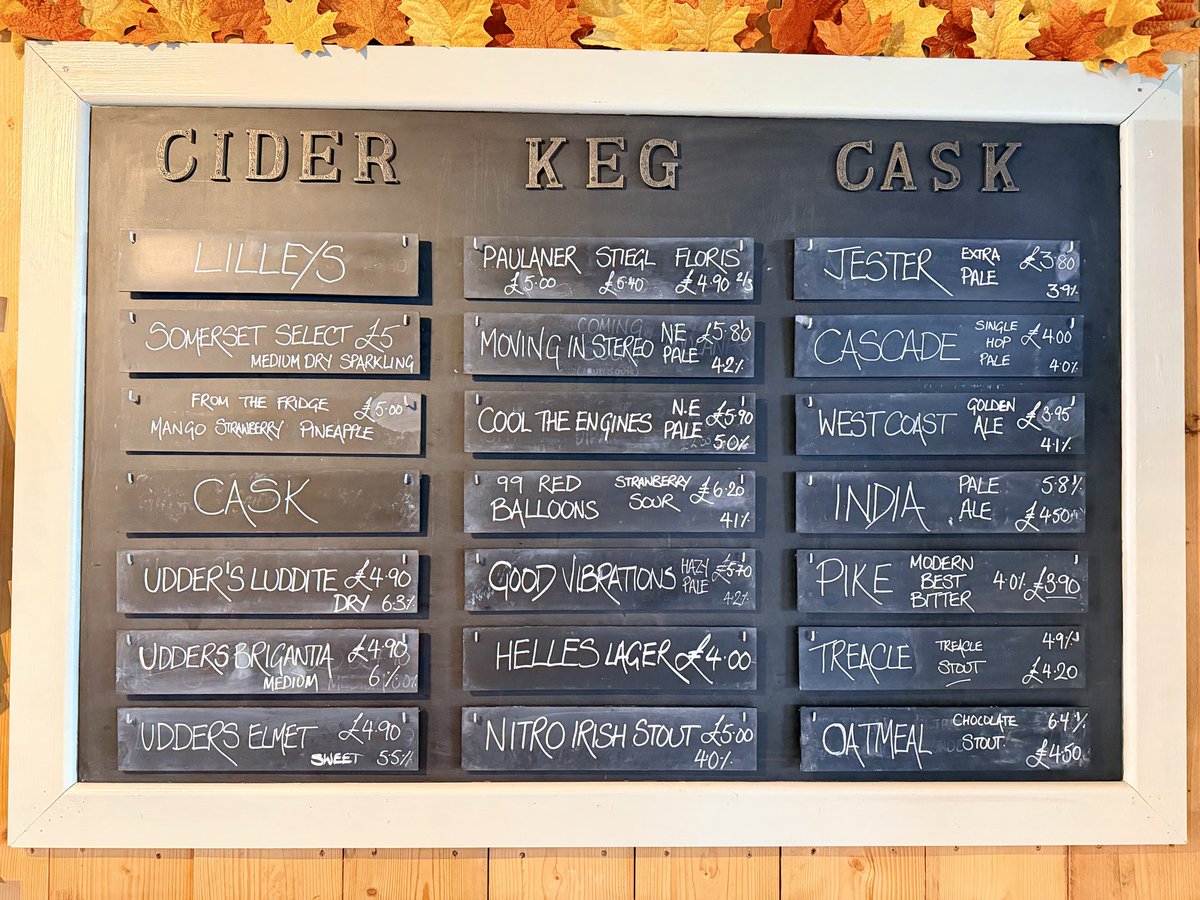 CIDER
LILLEYS
SOMERSET SELECT £5
MEDIUM DRY SPARKLING
FROM THE FRIDGE £5.00
MANGO STRAWBERRY PINEAPPLE
CASK
UDDER'S LUDDITE £4.90
DRY 6.3%
UDDERS BRIGANTIA £4.90
MEDIUM 6%
UDDERS ELMET £4.90
SWEET 5.5%
KEG
PAULANER STIEGL FLORIS
£5.00 £5.40 £4.90 2/3
COMING
MOVING IN STEREO NE PALE £5.80
4.2%
COOL THE ENGINES N.E PALE £5.90
5.0%
99 RED BALLOONS STRAWBERRY SOUR £6.20
4.1%
GOOD VIBRATIONS HAZY PALE £5.70
4.2%
HELLES LAGER £4.00
NITRO IRISH STOUT £5.00
4.0%
CASK
JESTER EXTRA PALE £3.80
3.9%
CASCADE SINGLE HOP PALE £4.00
4.0%
WEST COAST GOLDEN ALE £3.95
4.1%
INDIA PALE ALE 5.8%
£4.50
PIKE MODERN BEST BITTER 4.0% £3.90
TREACLE TREACLE STOUT 4.9%
£4.20
OATMEAL CHOCLATE STOUT. 6.4%
£4.50